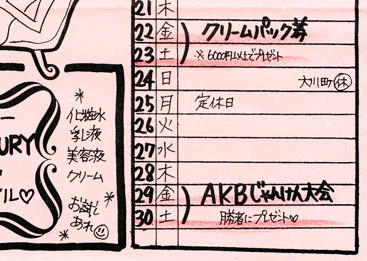 21 木
22 金 クリームパック券
23 土 ※6000円以上でプレゼント
24 日 大川町休
25 月 定休日
26 火
27 水
28 木
29 金 AKBじゃんけん大会
30 土 勝者にプレゼント♡
URY
ル♡
化粧水
乳液
美容液
クリーム
お試し
あれ